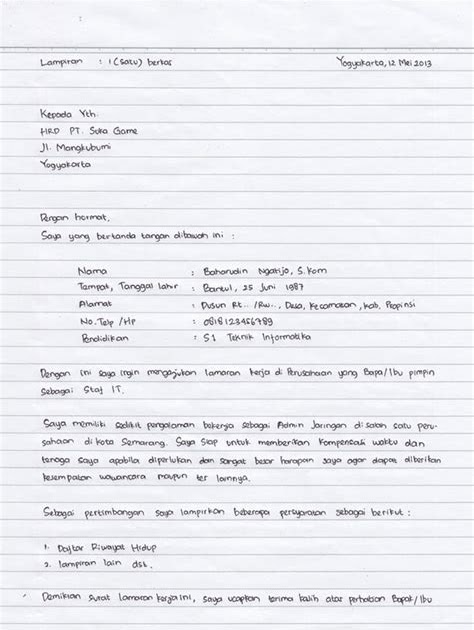 Lampiran : 1 (satu) berkas Yogyakarta, 12 Mei 2013
Kepada Yth.
HRD PT. Suka Game
Jl. Mangkubumi
Yogyakarta
Dengan hormat,
Saya yang bertanda tangan dibawah ini :
Nama : Baharudin Ngatijo, S.Kom
Tampat, Tanggal lahir : Bantul, 25 Juni 1987
Alamat : Dusun Rt... /Rw.., Desa, Kecamatan, Kab, Propinsi
No. Telp /HP : 0818123456789
Pendidikan : S1 Teknik Informatika
Dengan ini saya ingin mengajukan lamaran kerja di Perusahaan yang Bapa/Ibu pimpin
sebagai Staf IT.
Saya memiliki sedikit pengalaman bekerja sebagai Admin Jaringan di salah satu peru-
sahaan di kota Semarang. Saya siap untuk memberikan kompensasi waktu dan
tenaga saya apabila diperlukan dan sangat besar harapan saya agar dapat diberikan
kesempatan wawancara maupun tes lainnya.
Sebagai pertimbangan saya lampirkan beberapa persyaratan sebagai berikut :
1. Daftar Riwayat Hidup
2. lampiran lain dst.
Demikian surat lamaran kerja ini, saya ucapkan terima kasih atas perhatian Bapak/Ibu